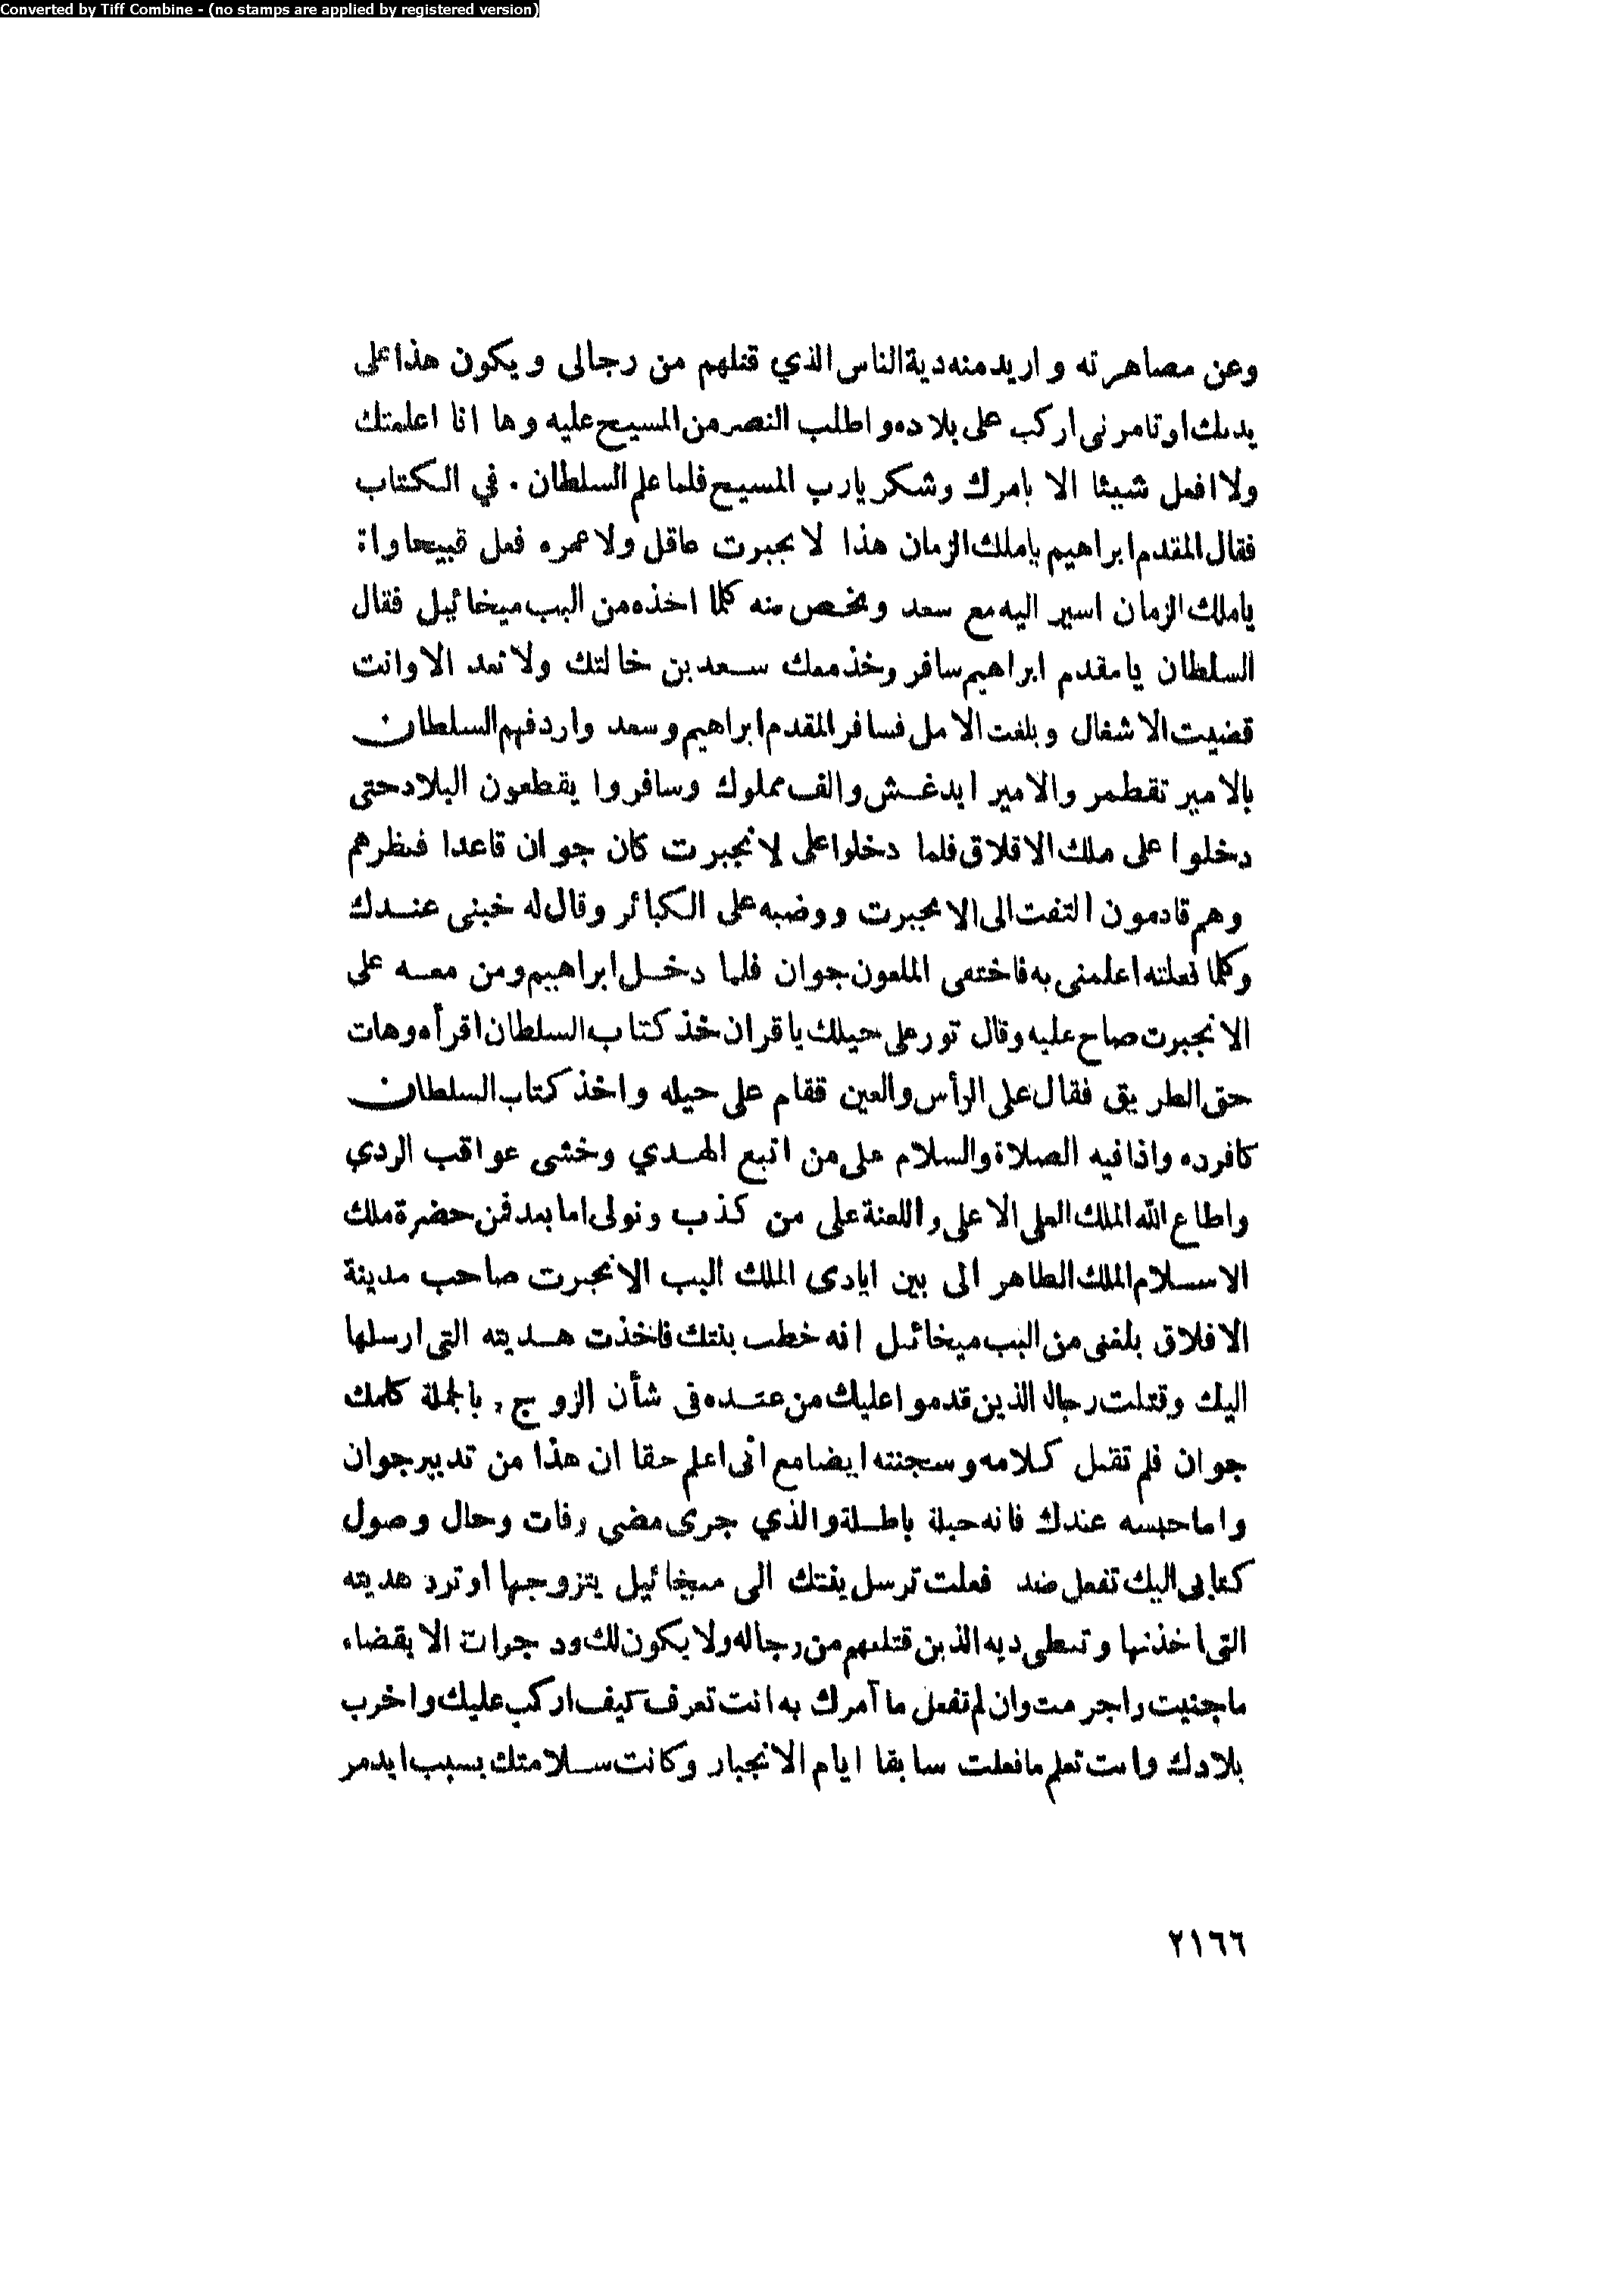 Converted by Tiff Combine - (no stamps are applied by registered version)
وعن مصاهرته واريد منه دية الناس الذي قتلهم من رجالى ويكون هذا على
يدك او تامرنى اركب على بلاده واطلب النصر من المسيح عليه وها انا اعلمتك
ولا افعل شيئا الا بامرك وشكر يارب المسيح فلما علم السلطان . في الكتاب
فقال المقدم ابراهيم ياملك الزمان هذا لانجبرت عاقل ولا عمره فعل قبيحا وانا
ياملك الزمان اسير اليه مع سعد ونخص منه كلما اخذه من البب ميخائيل فقال
السلطان يا مقدم ابراهيم سافر وخذ معك سعد بن خالتك ولا تعد الا وانت
قضيت الاشغال وبلغت الامل فسافر المقدم ابراهيم وسعد واردفهم السلطان
بالامير تقطمر والامير ايدغش والف مملوك وسافروا يقطعون البلاد حتى
دخلوا على ملك الاقلاق فلما دخلوا على لانجبرت كان جوان قاعدا فنظرهم
وهم قادمون التفت الى الانجبرت ووضبه على الكبائر وقال له خبنى عندك
وكلما فعلته اعلمنى به فاختفى الملعون جوان فلما دخل ابراهيم ومن معه على
الانجبرت صاح عليه وقال تور على حيلك ياقران خذ كتاب السلطان اقرأه وهات
حق الطريق فقال على الرأس والعين فقام على حيله واخذ كتاب السلطان
كافرده واذا فيه الصلاة والسلام على من اتبع الهدي وخشى عواقب الردي
واطاع الله الملك العلى الاعلى واللعنة على من كذب ونولى اما بعد فمن حضرة ملك
الاسلام الملك الطاهر الى بين ايادى الملك البب الانجبرت صاحب مدينة
الافلاق بلغنى من البب ميخائيل انه خطب بنتك فاخذت هديته التى ارسلها
اليك وقتلت رجاله الذين قدموا عليك من عنده فى شأن الزوج , بالجملة كلمك
جوان فلم تقبل كلامه وسجنته ايضا مع انى اعلم حقا ان هذا من تدبير جوان
واما حبسه عندك فانه حيلة باطلة والذي جرى مضى وفات وحال وصول
كتابى اليك تفعل ضد فعلت ترسل بنتك الى ميخائيل يتزوجها او ترد هديته
التى اخذتها وتعطى ديه الذين قتلتهم من رجاله ولا يكون لك ود جرات الا بقضاء
ماجنيت واجرمت وان لم تفعل ما آمرك به انت تعرف كيف اركب عليك واخرب
بلادك وانت تعلم مافعلت سابقا ايام الانجبار وكانت سلامتك بسبب ايدمر
٢١٦٦